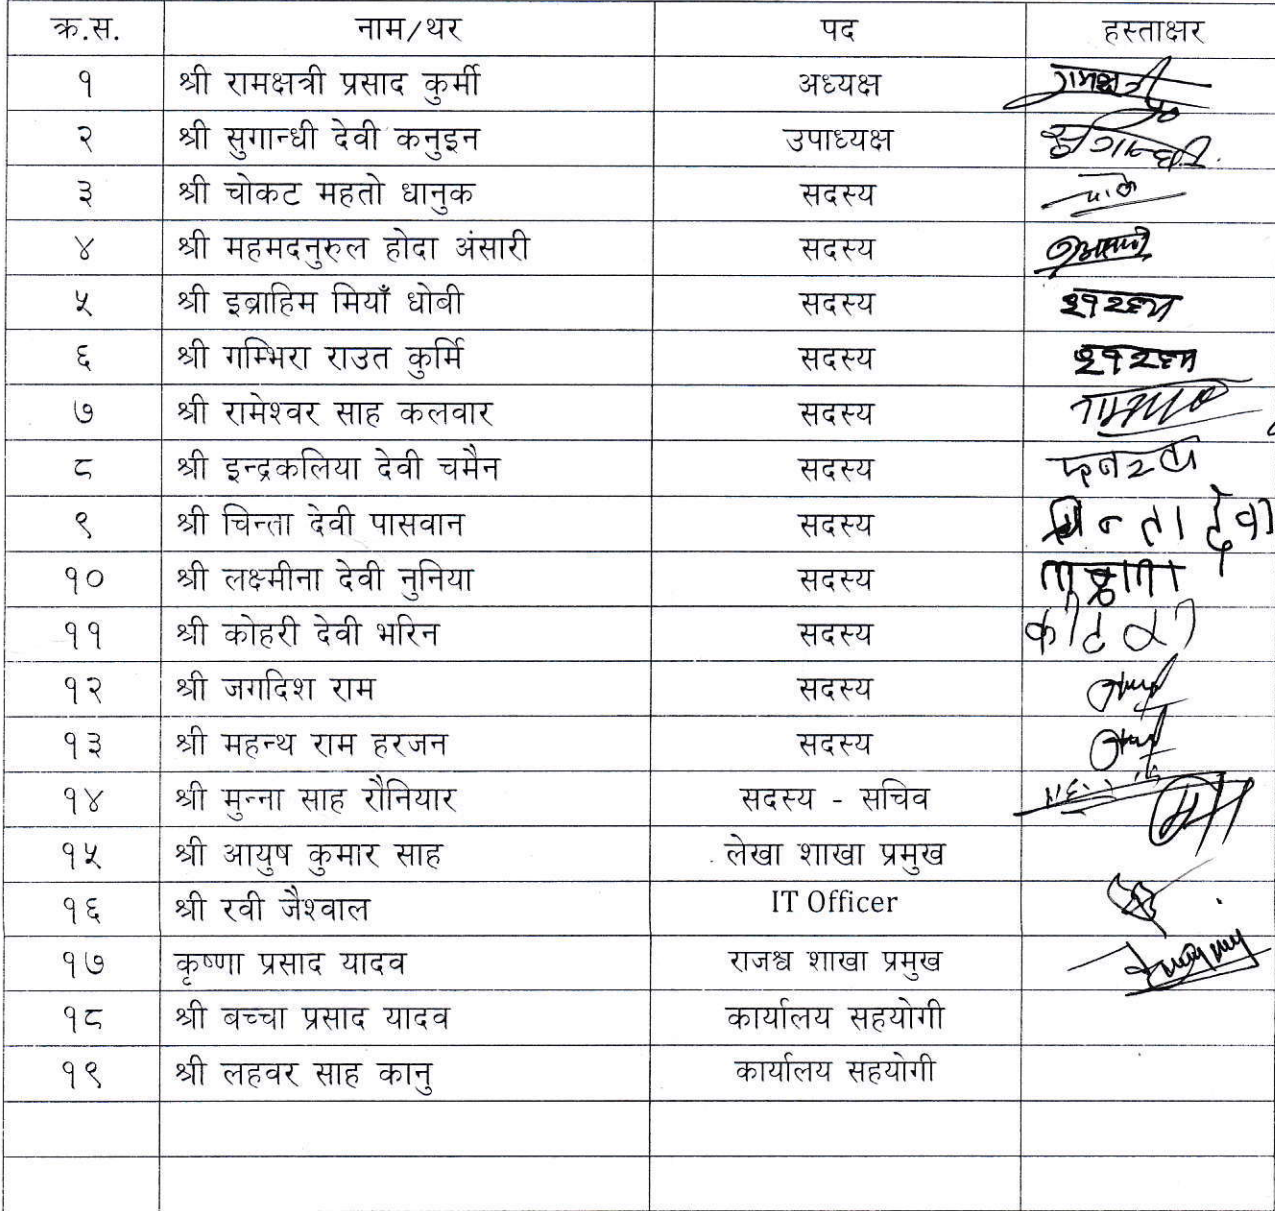 क्र.स. नाम/थर पद हस्ताक्षर
१ श्री रामक्षत्री प्रसाद कुर्मी अध्यक्ष रामक्षत्री
२ श्री सुगान्धी देवी कनुइन उपाध्यक्ष सुगान्धी
३ श्री चोकट महतो धानुक सदस्य
४ श्री महमदनुरुल होदा अंसारी सदस्य
५ श्री इब्राहिम मियाँ धोबी सदस्य
६ श्री गम्भिरा राउत कुर्मि सदस्य
७ श्री रामेश्वर साह कलवार सदस्य
८ श्री इन्द्रकलिया देवी चमैन सदस्य
९ श्री चिन्ता देवी पासवान सदस्य चिन्ता देवी
१० श्री लक्ष्मीना देवी नुनिया सदस्य
११ श्री कोहरी देवी भरिन सदस्य
१२ श्री जगदिश राम सदस्य
१३ श्री महन्थ राम हरजन सदस्य
१४ श्री मुन्ना साह रौनियार सदस्य - सचिव
१५ श्री आयुष कुमार साह लेखा शाखा प्रमुख
१६ श्री रवी जैश्वाल IT Officer
१७ कृष्णा प्रसाद यादव राजश्व शाखा प्रमुख
१८ श्री बच्चा प्रसाद यादव कार्यालय सहयोगी
१९ श्री लहवर साह कानु कार्यालय सहयोगी